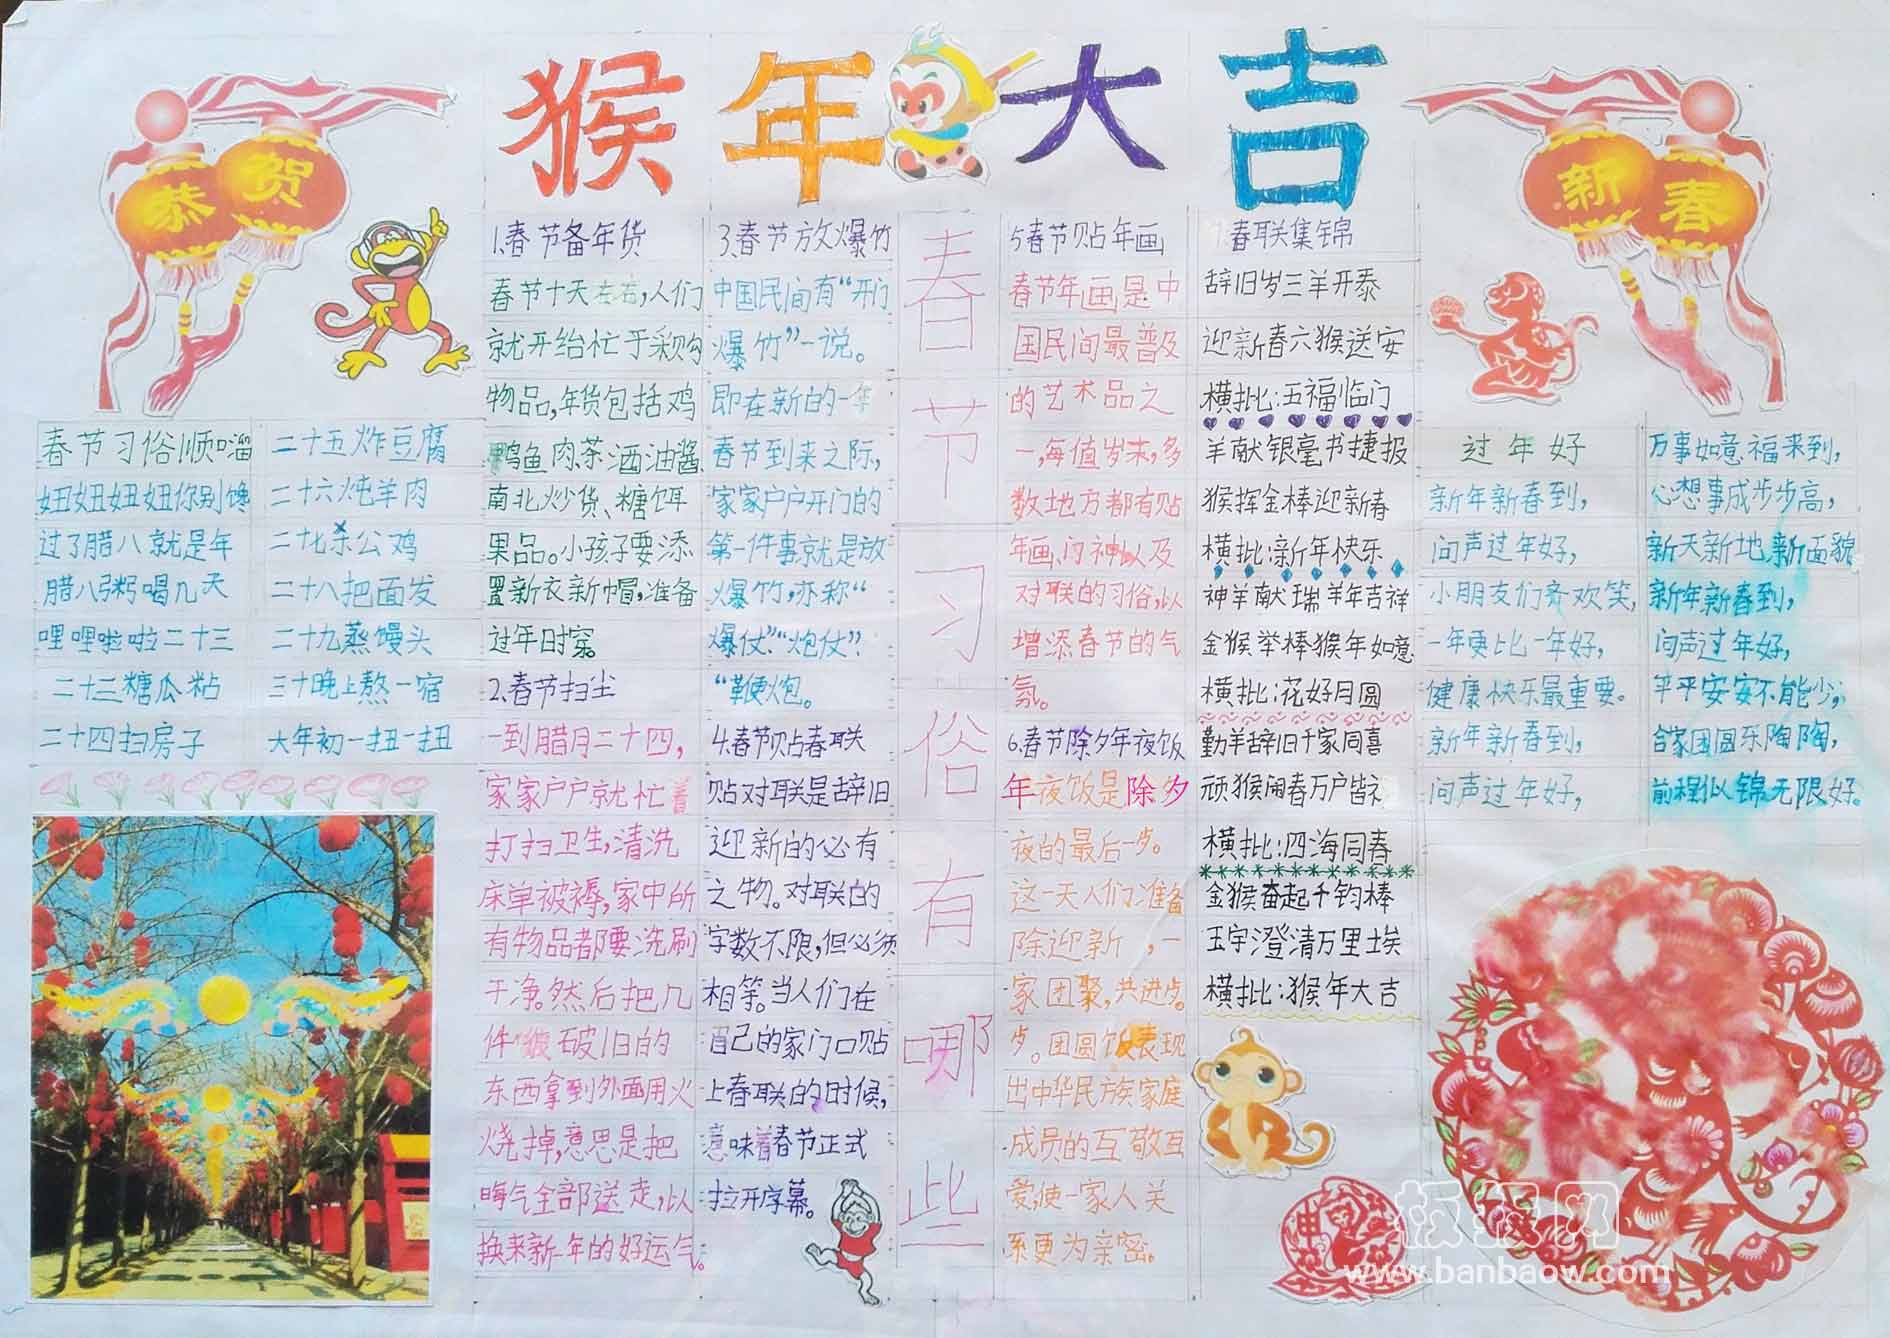 猴年大吉
恭贺
新春
春节习俗顺口溜
妞妞妞妞你别馋
过了腊八就是年
腊八粥喝几天
哩哩啦啦二十三
二十三糖瓜粘
二十四扫房子
二十五炸豆腐
二十六炖羊肉
二十七杀公鸡
二十八把面发
二十九蒸馒头
三十晚上熬一宿
大年初一扭一扭
1.春节备年货
春节十天左右,人们
就开始忙于采购
物品,年货包括鸡
鸭鱼肉茶酒油酱
南北炒货、糖饵
果品。小孩子要添
置新衣新帽,准备
过年时穿。
2.春节扫尘
一到腊月二十四,
家家户户就忙着
打扫卫生,清洗
床单被褥,家中所
有物品都要洗刷
干净。然后把几
件破旧的
东西拿到外面用火
烧掉,意思是把
晦气全部送走,以
换来新年的好运气。
3.春节放爆竹
中国民间有“开门
爆竹”一说。
即在新的一年
春节到来之际,
家家户户开门的
第一件事就是放
爆竹,亦称“
爆仗”“炮仗”
“鞭炮。
4.春节贴春联
贴对联是辞旧
迎新的必有
之物。对联的
字数不限,但必须
相等。当人们在
自己的家门口贴
上春联的时候,
意味着春节正式
拉开字幕。
春节习俗有哪些
5春节贴年画
春节年画是中
国民间最普及
的艺术品之
一,每值岁末,多
数地方都有贴
年画、门神以及
对联的习俗,以
增添春节的气
氛。
6.春节除夕年夜饭
年夜饭是除夕
夜的最后一步。
这一天人们准备
除迎新,一
家团聚,共进步。
步。团圆饭表现
出中华民族家庭
成员的互敬互
爱,使一家人关
系更为亲密。
7.春联集锦
辞旧岁三羊开泰
迎新春六猴送安
横批:五福临门
羊献银毫书捷报
猴挥金棒迎新春
横批:新年快乐
神羊献瑞羊年吉祥
金猴举棒猴年如意
横批:花好月圆
勤羊辞旧千家同喜
顽猴闹春万户皆
横批:四海同春
金猴奋起千钧棒
玉宇澄清万里埃
横批:猴年大吉
过年好
新年新春到,
问声过年好,
小朋友们齐欢笑,
一年更比一年好,
健康快乐最重要。
新年新春到,
问声过年好,
万事如意福来到,
心想事成步步高,
新天新地新面貌
新年新春到,
问声过年好,
平平安安不能少,
合家团圆乐陶陶,
前程似锦无限好。
申
板报网
www.banbaow.com